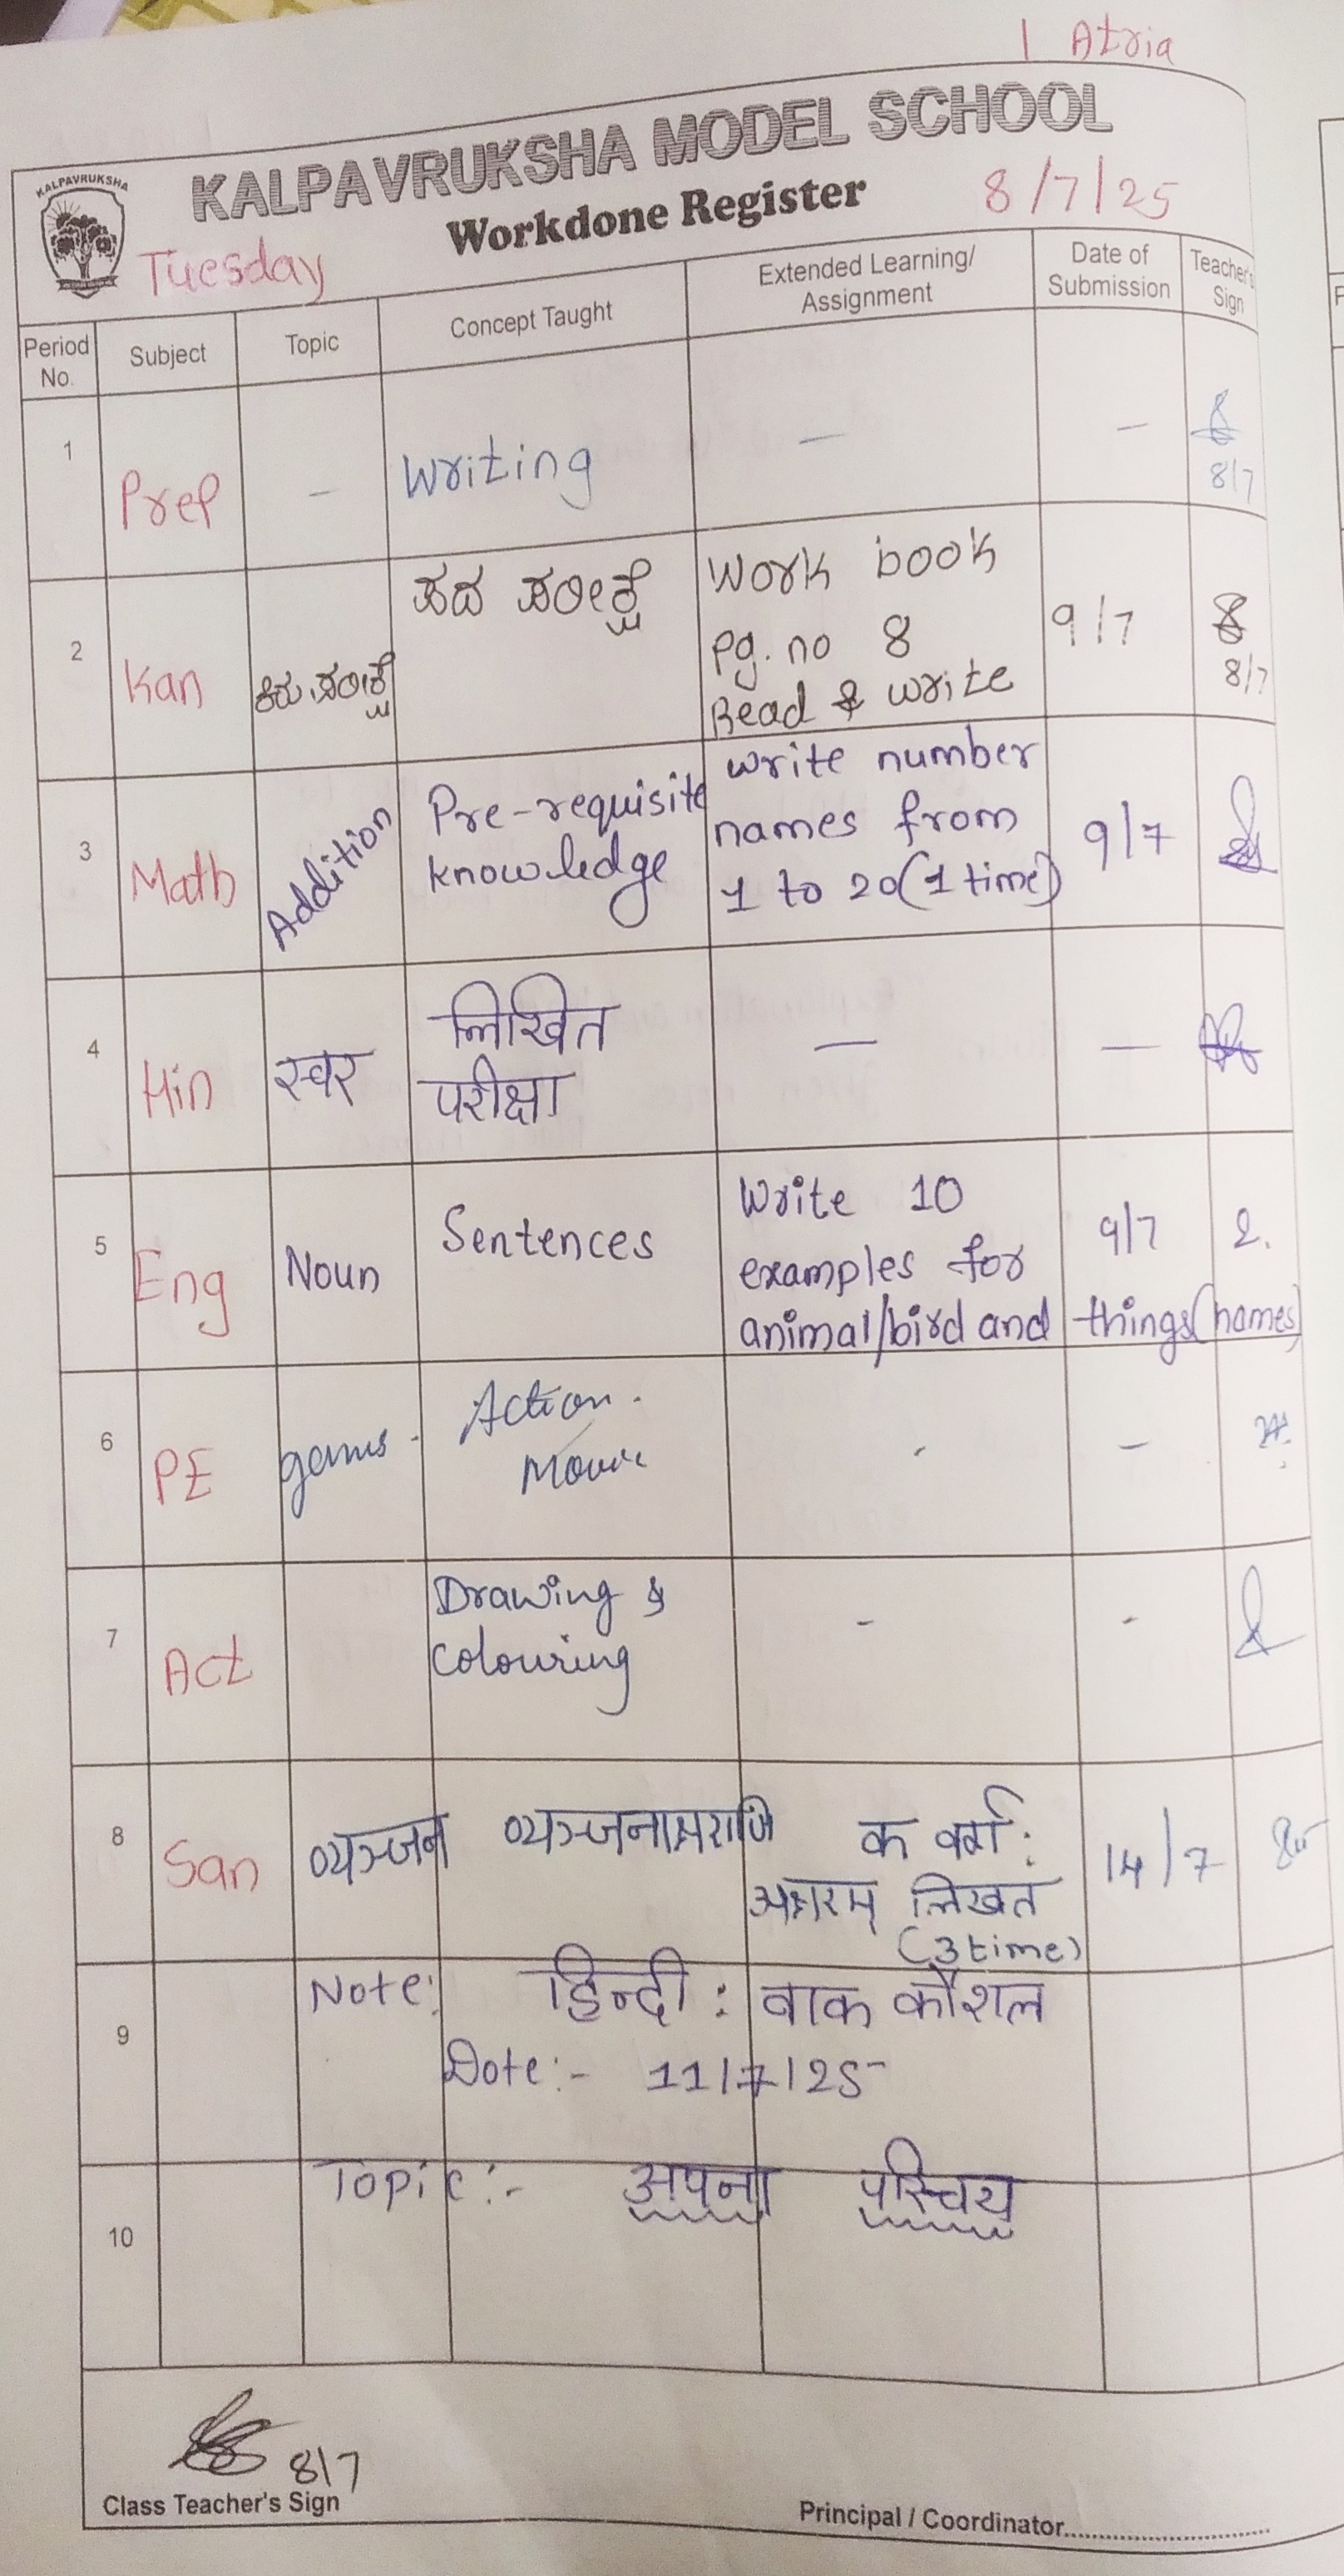 1 Atria
KALPAVRUKSHA MODEL SCHOOL
KALPAVRUKSHA
Workdone Register
8/7/25
Tuesday
Period No. Subject Topic Concept Taught Extended Learning/ Assignment Date of Submission Teacher's Sign
1 Prep - Writing - - 8/7
2 Kan ಕಿರು ಪರೀಕ್ಷೆ ಪದ ಪರೀಕ್ಷೆ Work book
Pg. no 8
Read & write
9/7 8/7
3 Math Addition Pre-requisite
knowledge
write number
names from
1 to 20(1 time)
9/7
4 Hin स्वर लिखित
परीक्षा
- -
5 Eng Noun Sentences Write 10
examples for
animal/bird and things(names)
9/7
6 PE Action. -
7 Act Drawing &
colouring
- -
8 San व्यञ्जन व्यञ्जनाक्षराणि क वर्ग:
अक्षरम् लिखत
(3 time)
14/7
9 Note: हिन्दी : वाक कौशल
Date:- 11/7/25
10 Topic:- अपना परिचय
8/7
Class Teacher's Sign
Principal / Coordinator